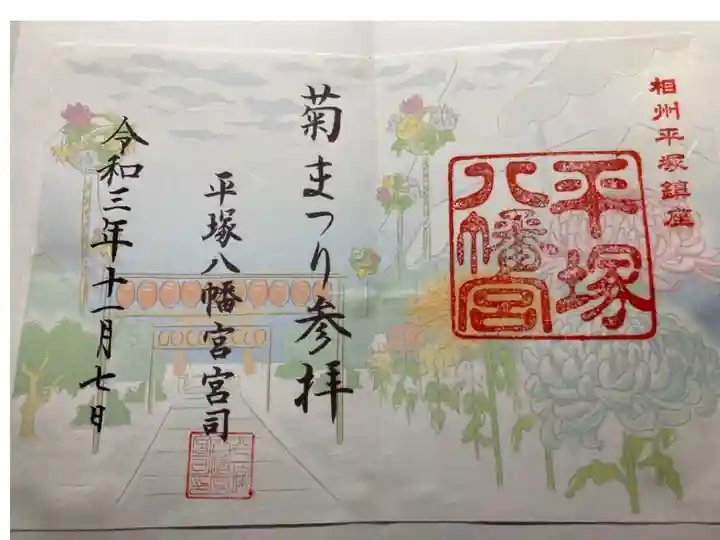 相州平塚鎮座
平塚
八幡宮
菊まつり参拝
平塚八幡宮宮司
令和三年十一月七日